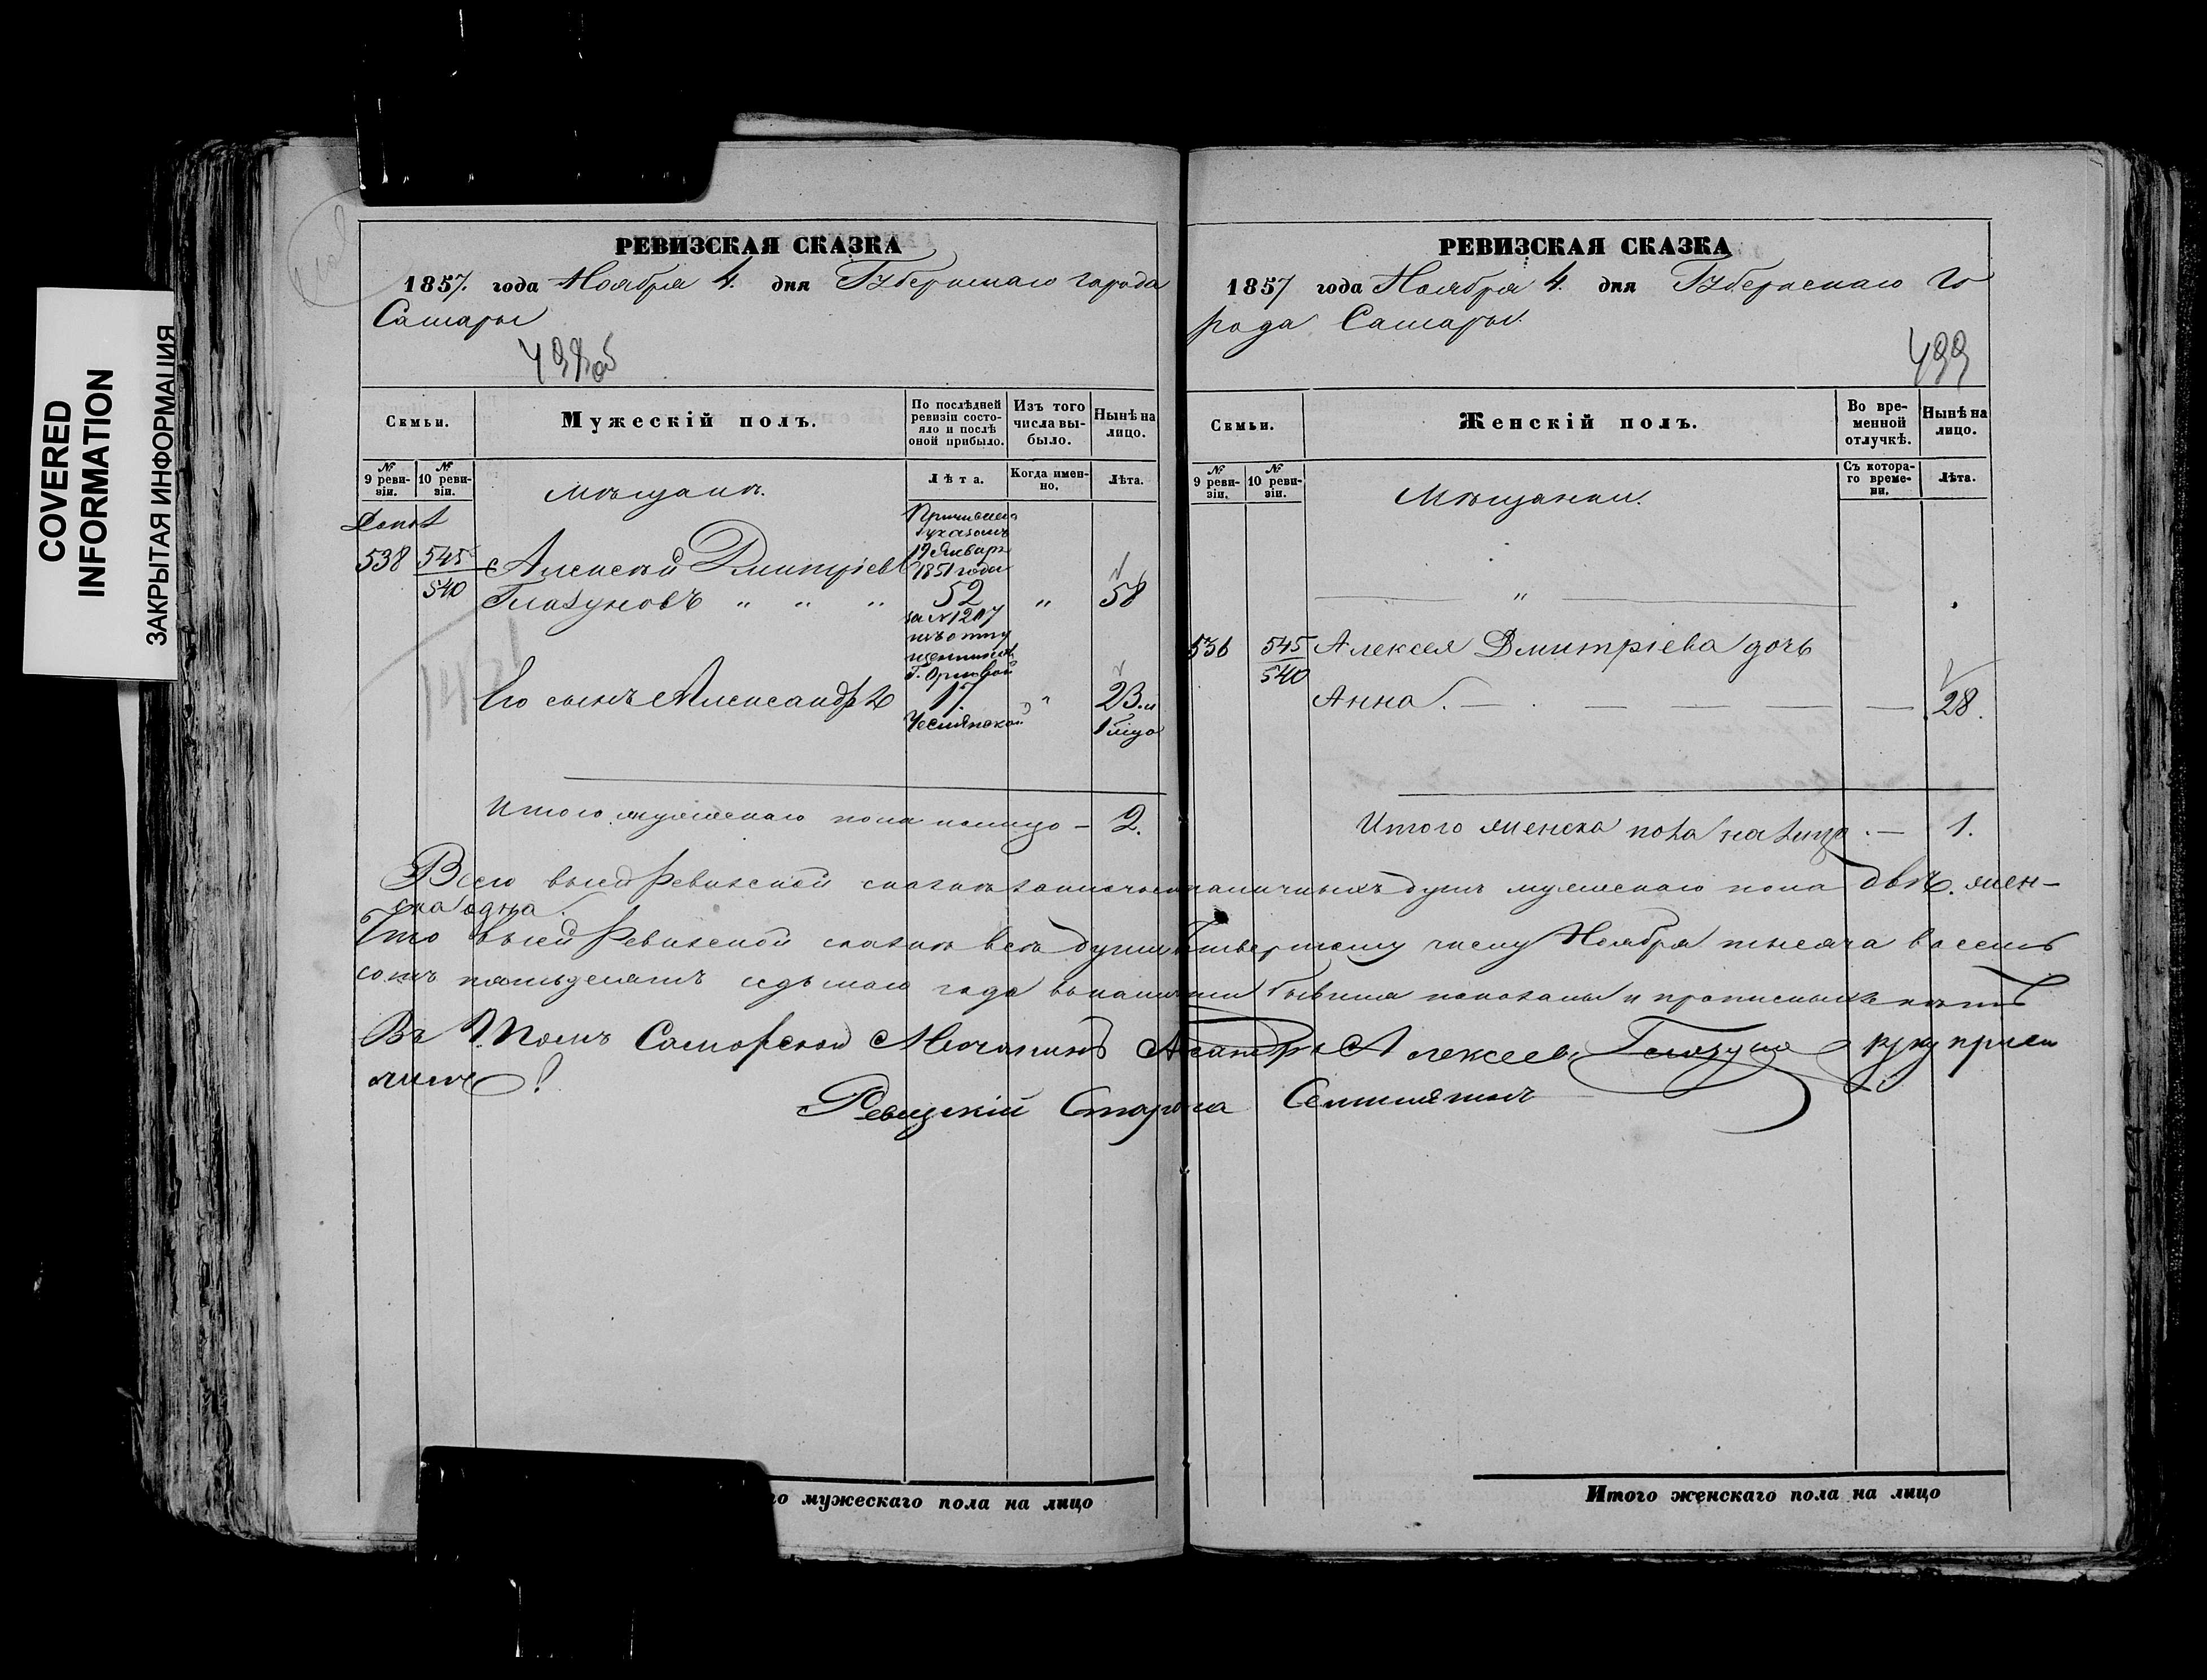 COVERED
INFORMATION
ЗАКРЫТАЯ ИНФОРМАЦИЯ
РЕВИЗСКАЯ СКАЗКА
1857. года Ноября 4. дня Губернскаго города
Самары
498об
Семьи.
Мужескій полъ.
По послѣдней ревизіи состояло и послѣ оной прибыло.
Изъ того числа выбыло.
Нынѣ на лицо.
№ 9 ревизіи.
№ 10 ревизіи.
Мѣщане.
Лѣта.
Когда именно.
Лѣта.
Допол
538 545/540 Алексей Дмитріевъ
Глазуновъ " " " 52 " 58
19 Январ
1851 года
за № 1217
Его сынъ Александръ 17. " 23. и
Итого мужескаго пола налицо - 2.
го мужескаго пола на лицо
РЕВИЗСКАЯ СКАЗКА
1857 года Ноября 4. дня Губернскаго Го
рода Самары.
499
Семьи.
Женскій полъ.
Во временной отлучкѣ.
Нынѣ на лицо.
№ 9 ревизіи.
№ 10 ревизіи.
Мѣщанки.
Съ котораго времени.
Лѣта.
"
536 545/540 Алексея Дмитріева дочь
Анна. 28.
Итого женска пола налицо. — 1.
Всего въ сей Ревизской сказкѣ заключается наличныхъ душъ мужескаго пола двѣ. жен-
ска одна.
Что въ сей Ревизской сказкѣ всѣ души к четвертому числу Ноября тысяча восемь
сотъ пятьдесятъ седьмаго года в наличіи бывшія показаны и прописныхъ нѣтъ
Въ Томъ Самарской Мечанинъ Алексеевъ Глазунов руку прило
жилъ
Ревизскій Староста
Итого женскаго пола на лицо